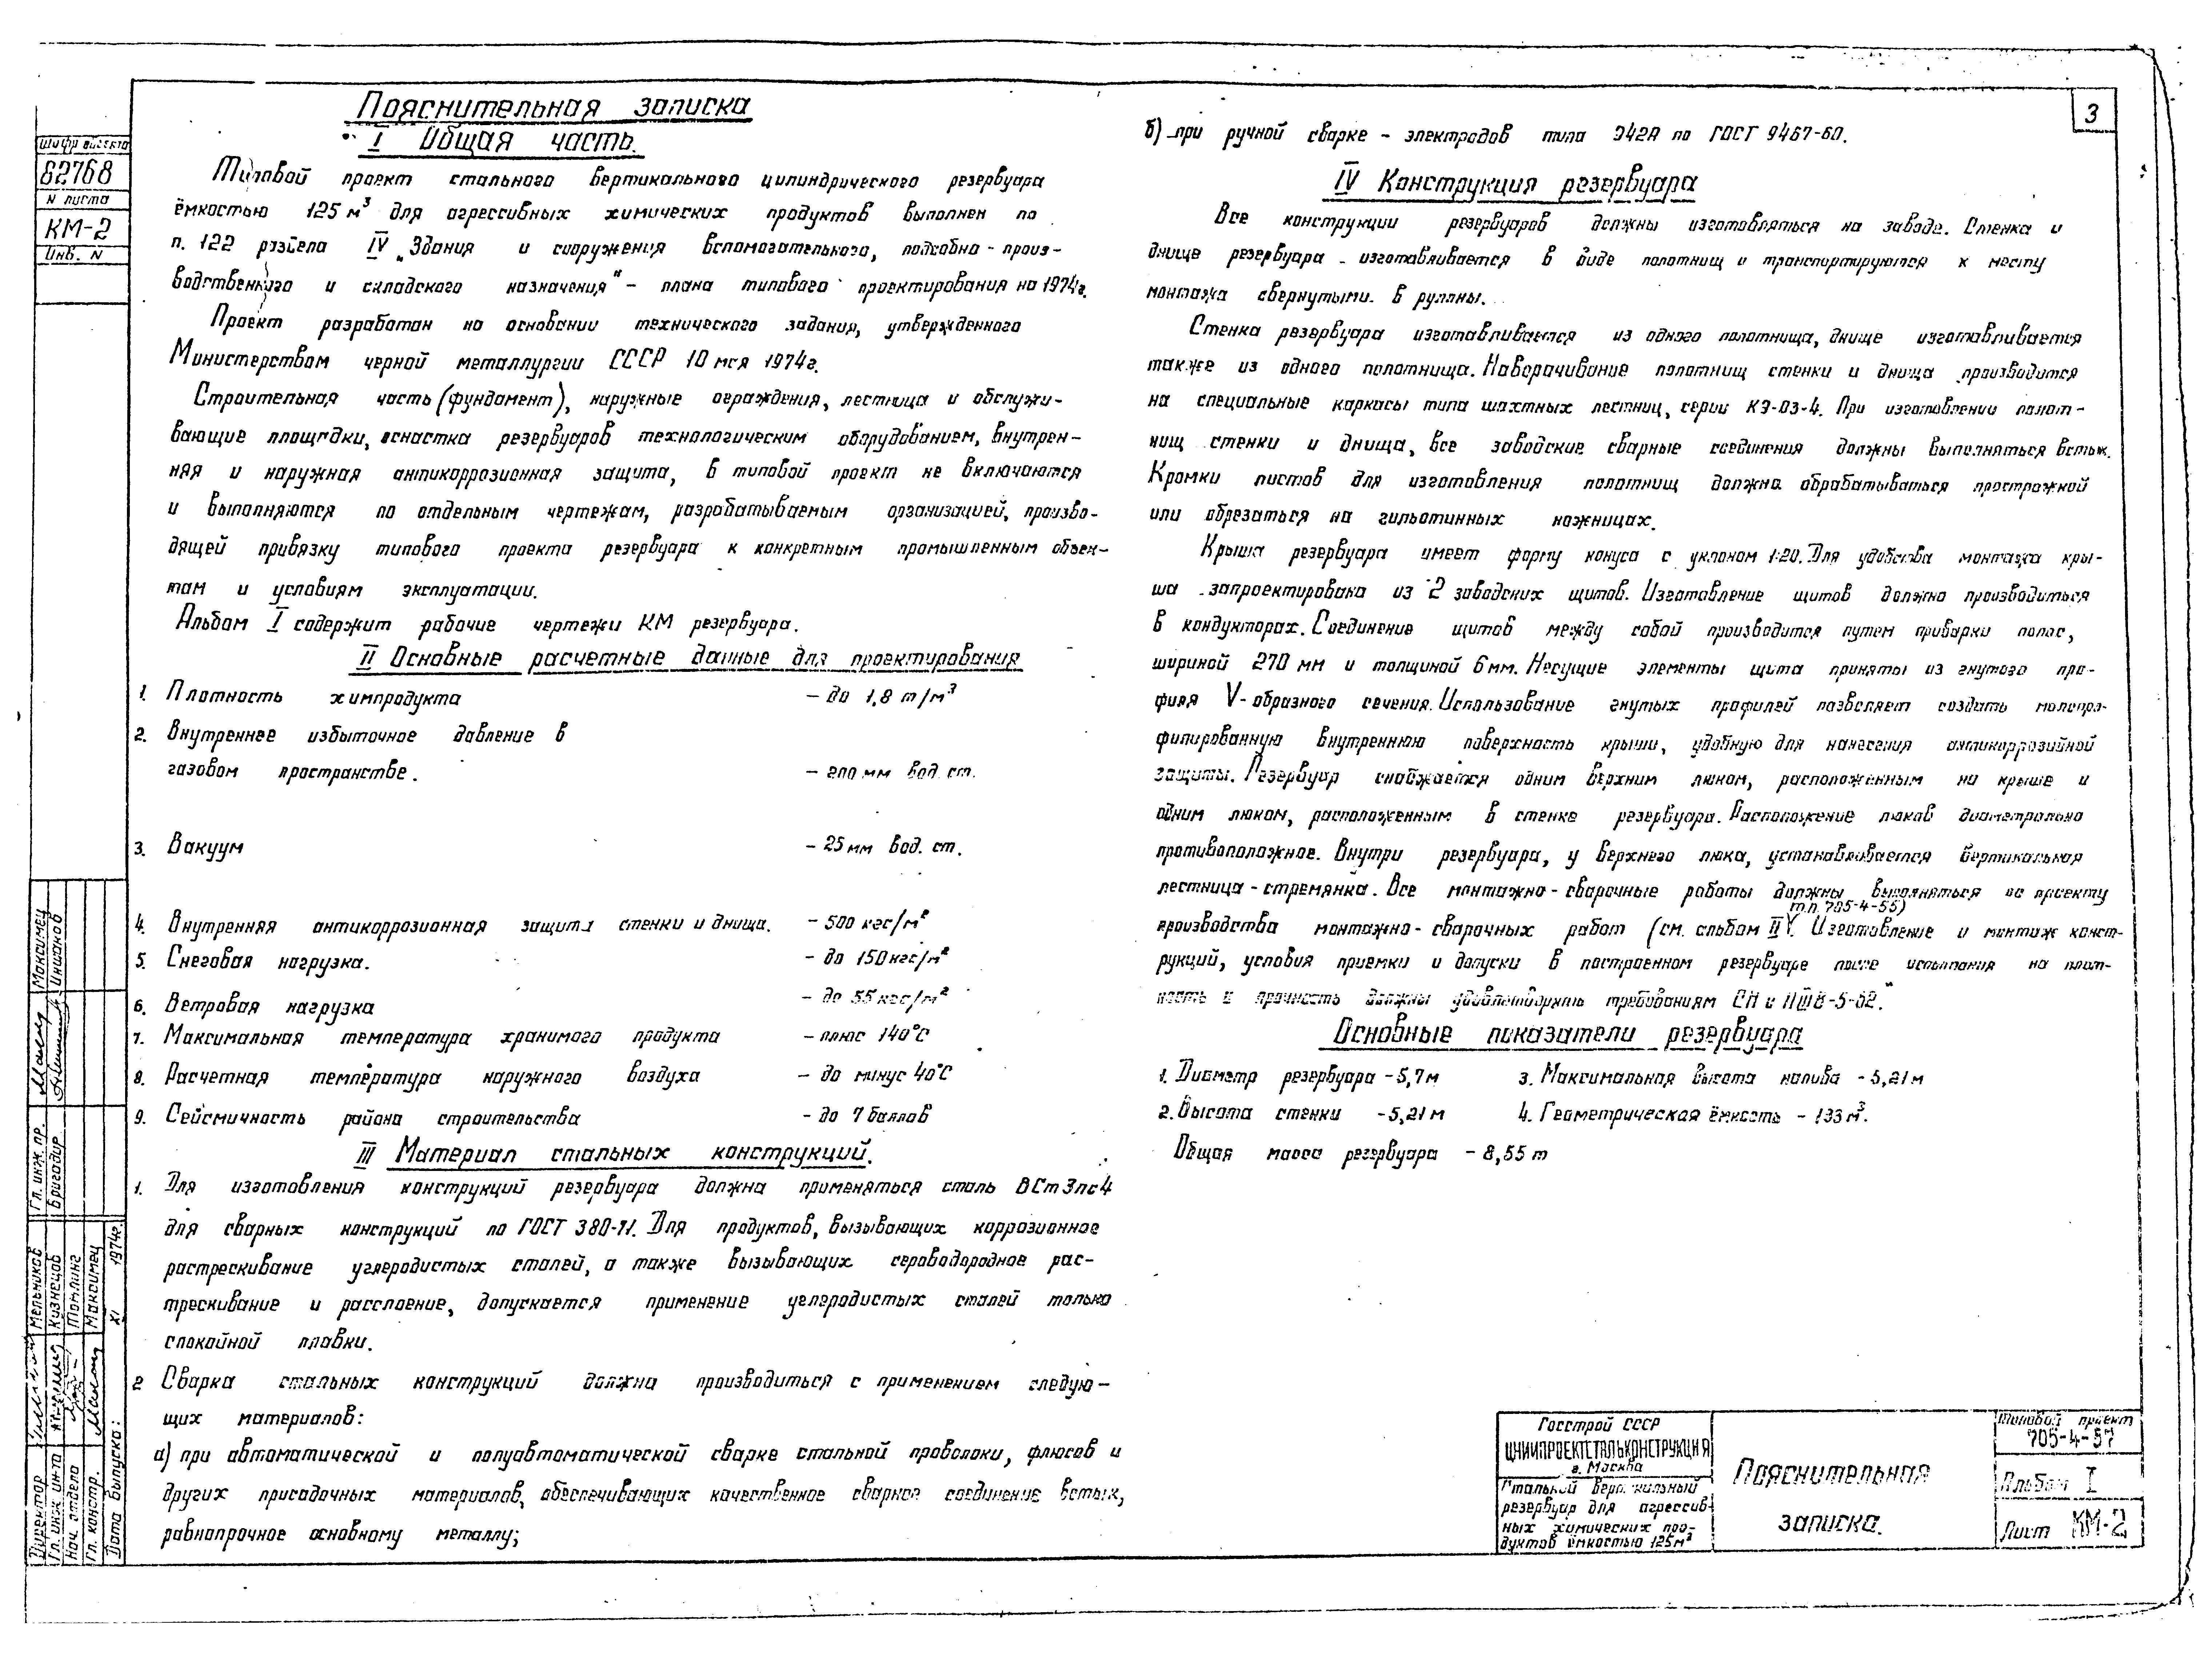 3
Шифр объекта
62768
N листа
КМ-2
Инв. N
Пояснительная записка
I Общая часть.
Типовой проект стального вертикального цилиндрического резервуара
ёмкостью 125 м³ для агрессивных химических продуктов выполнен по
п. 122 раздела IV „Здания и сооружения вспомогательного, подсобно-произ-
водственного и складского назначения" – плана типового проектирования на 1974г.
Проект разработан на основании технического задания, утвержденного
Министерством черной металлургии СССР 10 мая 1974г.
Строительная часть (фундамент), наружные ограждения, лестница и обслужи-
вающие площадки, оснастка резервуаров технологическим оборудованием, внутрен-
няя и наружная антикоррозионная защита, в типовой проект не включаются
и выполняются по отдельным чертежам, разрабатываемым организацией, произво-
дящей привязку типового проекта резервуара к конкретным промышленным объек-
там и условиям эксплуатации.
Альбом I содержит рабочие чертежи КМ резервуара.
II Основные расчетные данные для проектирования
1. Плотность химпродукта – до 1,8 т/м³
2. Внутреннее избыточное давление в
газовом пространстве. – 200 мм вод. ст.
3. Вакуум – 25 мм вод. ст.
4. Внутренняя антикоррозионная защита стенки и днища. – 500 кгс/м²
5. Снеговая нагрузка. – до 150 кгс/м²
6. Ветровая нагрузка – до 55 кгс/м²
7. Максимальная температура хранимого продукта – плюс 140°С
8. Расчетная температура наружного воздуха – до минус 40°С
9. Сейсмичность района строительства – до 7 баллов
III Материал стальных конструкций.
1. Для изготовления конструкций резервуара должна применяться сталь ВСт3пс4
для сварных конструкций по ГОСТ 380-71. Для продуктов, вызывающих коррозионное
растрескивание углеродистых сталей, а также вызывающих сероводородное рас-
трескивание и расслоение, допускается применение углеродистых сталей только
спокойной плавки.
2 Сварка стальных конструкций должна производиться с применением следую-
щих материалов:
а) при автоматической и полуавтоматической сварке стальной проволоки, флюсов и
других присадочных материалов, обеспечивающих качественное сварное соединение встык,
равнопрочное основному металлу;
б) при ручной сварке – электродов типа Э42А по ГОСТ 9467-60.
IV Конструкция резервуара
Все конструкции резервуаров должны изготовляться на заводе. Стенка и
днище резервуара изготавливается в виде полотнищ и транспортируются к месту
монтажа свернутыми в рулоны.
Стенка резервуара изготавливается из одного полотнища, днище изготавливается
также из одного полотнища. Наворачивание полотнищ стенки и днища производится
на специальные каркасы типа шахтных лестниц, серии КЭ-03-4. При изготовлении полот-
нищ стенки и днища, все заводские сварные соединения должны выполняться встык.
Кромки листов для изготовления полотнищ должна обрабатываться простражкой
или обрезаться на гильотинных ножницах.
Крыша резервуара имеет форму конуса с уклоном 1:20. Для удобства монтажа кры-
ша запроектирована из 2 заводских щитов. Изготовление щитов должно производиться
в кондукторах. Соединение щитов между собой производится путем приварки полос,
шириной 270 мм и толщиной 6 мм. Несущие элементы щита приняты из гнутого про-
филя V-образного сечения. Использование гнутых профилей позволяет создать малопро-
филированную внутреннюю поверхность крыши, удобную для нанесения антикоррозийной
защиты. Резервуар снабжается одним верхним люком, расположенным на крыше и
одним люком, расположенным в стенке резервуара. Расположение люков диаметрально
противоположное. Внутри резервуара, у верхнего люка, устанавливается вертикальная
лестница-стремянка. Все монтажно-сварочные работы должны выполняться по проекту
т.п. 705-4-55)
производства монтажно-сварочных работ (см. альбом II. Изготовление и монтаж конст-
рукций, условия приемки и допуски в построенном резервуаре после испытания на плот-
ность и прочность должны удовлетворять требованиям СНиП III В-5-62."
Основные показатели резервуара
1. Диаметр резервуара – 5,7 м 3. Максимальная высота налива – 5,21 м
2. Высота стенки – 5,21 м 4. Геометрическая ёмкость – 133 м³.
Общая масса резервуара – 8,55 т
Гл. инж. пр. Максимец
Бригадир
Директор Мельников
Гл. инж. ин-та Кузнецов
Нач. отдела
Гл. констр. Максимец
Дата выпуска: XI 1974г.
Госстрой СССР
ЦНИИПРОЕКТСТАЛЬКОНСТРУКЦИЯ
г. Москва
Стальной вертикальный
резервуар для агрессив-
ных химических про-
дуктов ёмкостью 125м³
Пояснительная
записка.
Типовой проект
705-4-57
Альбом I
Лист КМ-2